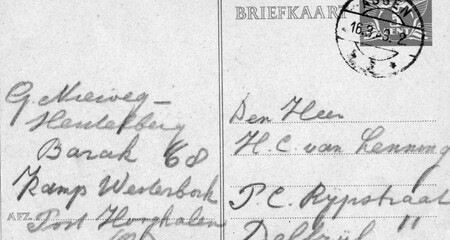 BRIEFKAART
ASSEN
16.3
G. Nieweg-
Heutelberg
Barak 68
Kamp Westerbork
AFZ. Post Hooghalen
Den Heer
H. C. van Lenning
P. C. Rypstraat
Delfzijl